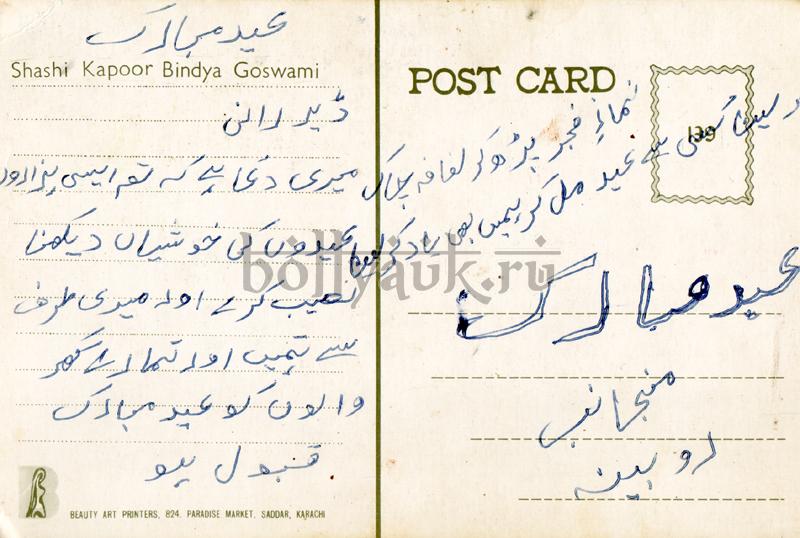 عید مبارک
Shashi Kapoor Bindya Goswami
ڈیر رانی
میری دعا ہے کہ تم ایسی ہزاروں
عیدوں کی خوشیاں دیکھنا
نصیب کرے اور میری طرف
سے تمہیں اور تمہارے گھر
والوں کو عید مبارک
قبول ہو
BEAUTY ART PRINTERS, 824, PARADISE MARKET, SADDAR, KARACHI
POST CARD
139
نماز فجر پڑھ کر لفافہ چاک
سے عید مل کر ہمیں بھی یاد کر لینا
عید مبارک
منجانب
روبینہ
bollyauk.ru